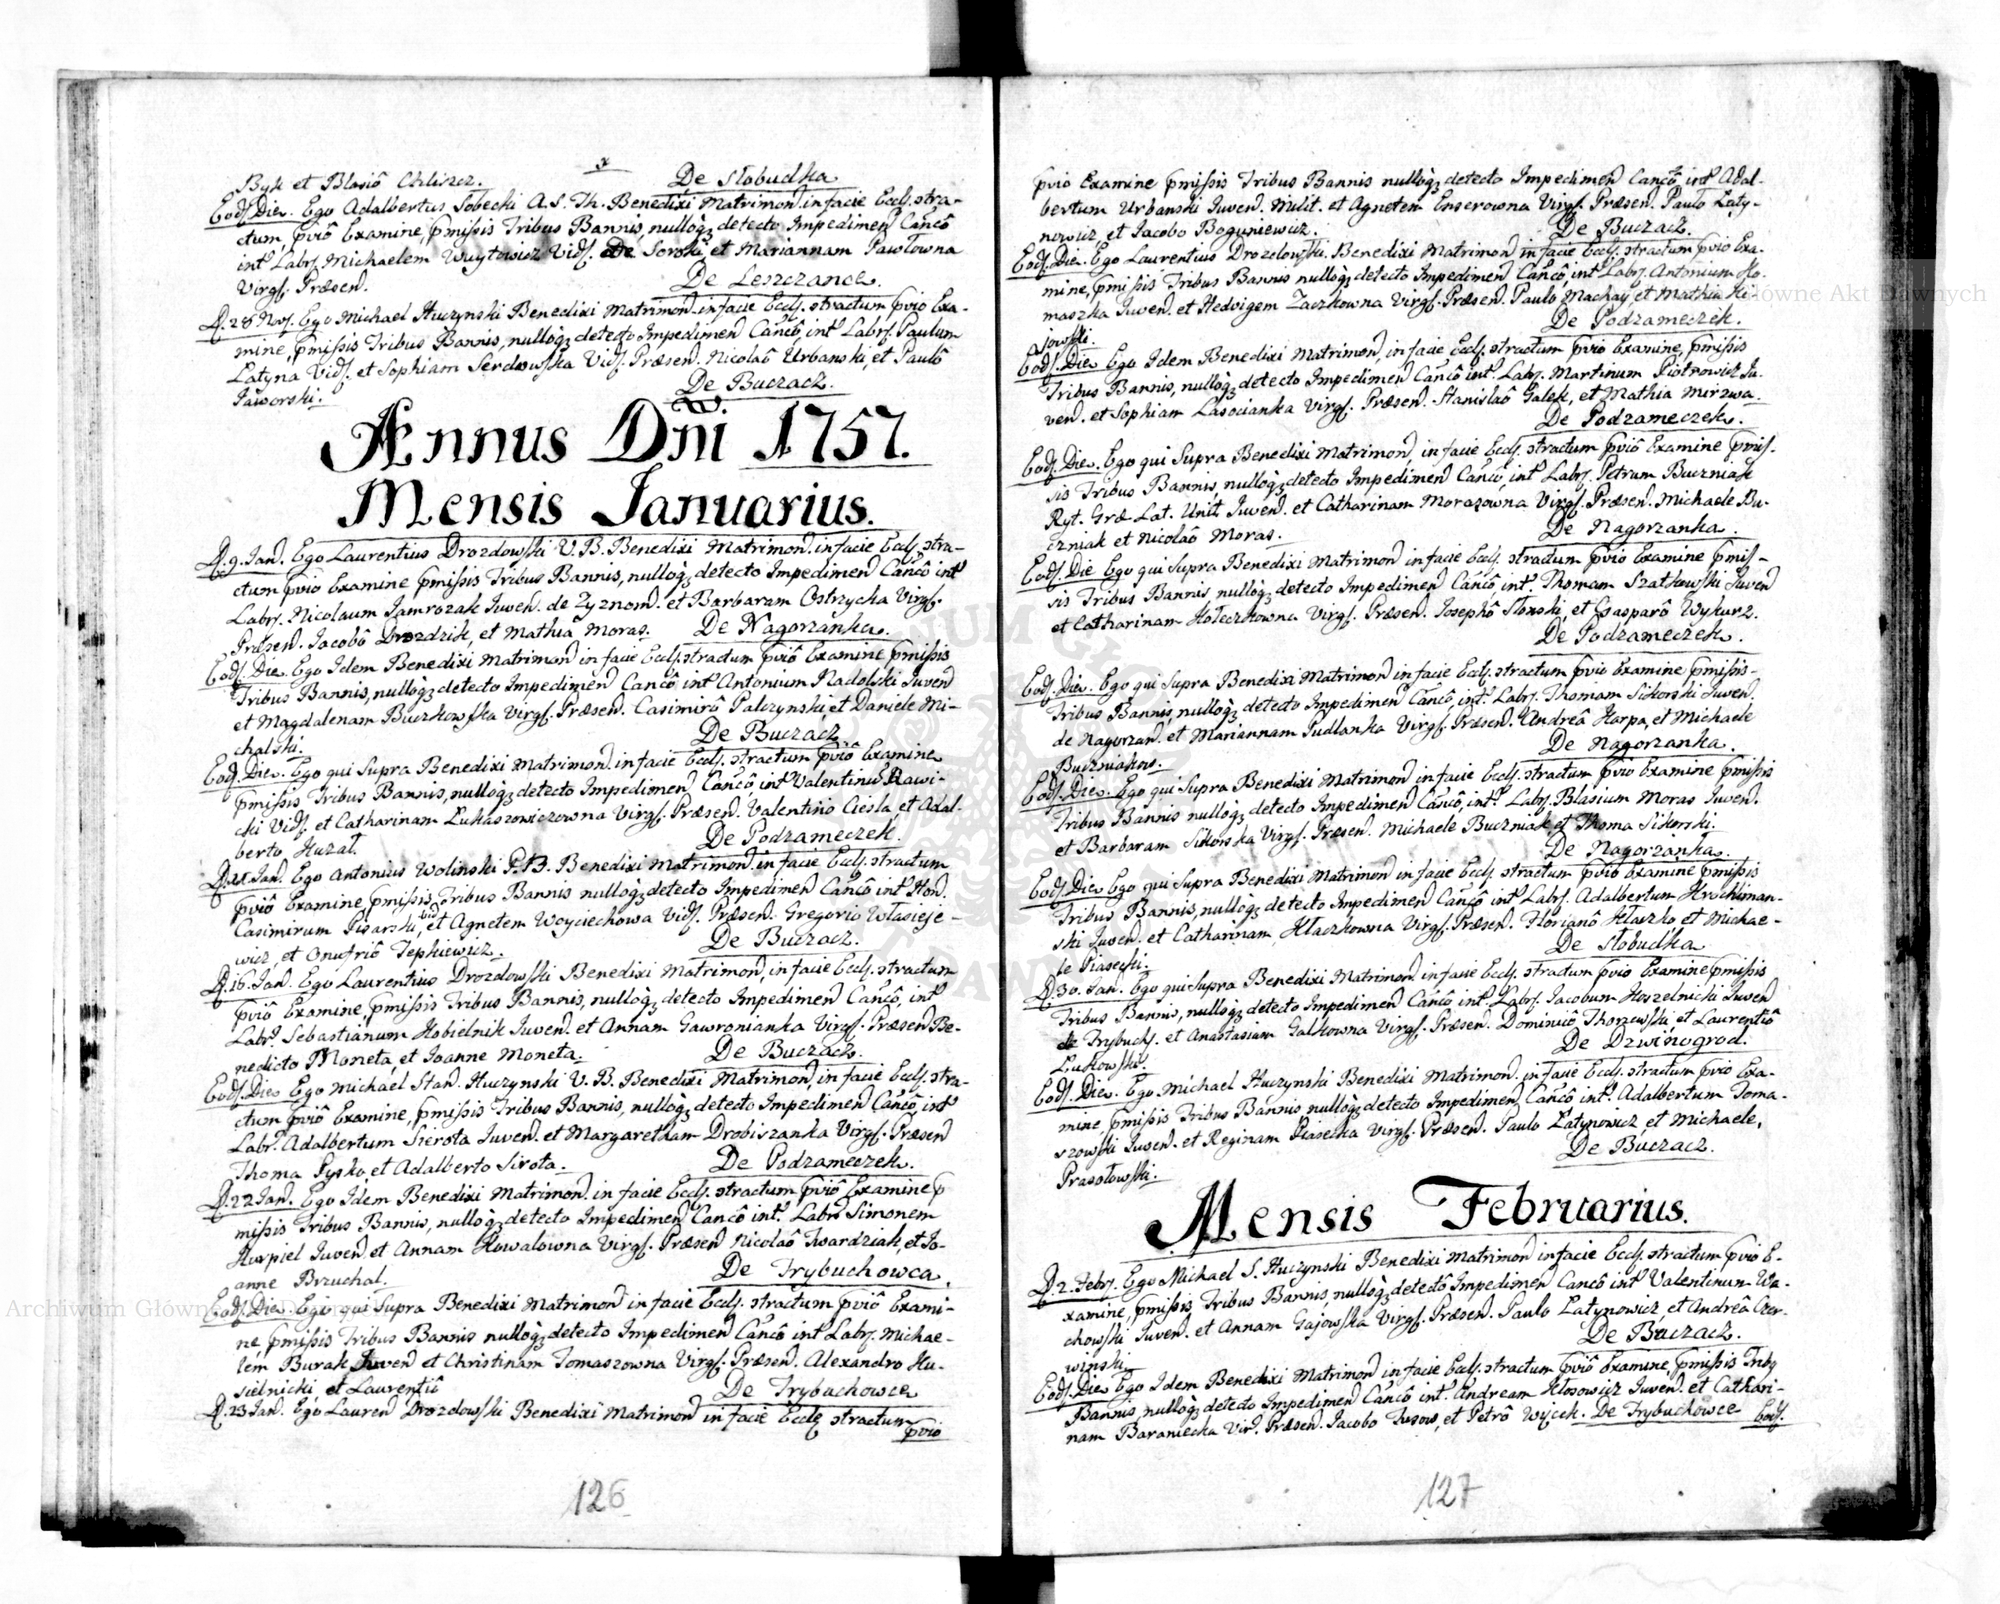 Byk et Blasiô Chliszcz. De Slobudka
Eod. Die. Ego Adalbertus Sobecki A. S. Th. Benedixi Matrimon. in facie Eccl. stra-
ctum, pviô Examine, pmissis Tribus Bannis, nullòq; detecto Impedimen Cancô
int Labrs. Michaelem Wuytowicz Vid. De Sorski et Mariannam Pawlowna
Virg. Præsen. De Leszczance.
D. 28 Nov. Ego Michael Huczynski Benedixi Matrimon. in facie Eccl. stractum pviô Exa-
mine, pmissis Tribus Bannis, nullòq; detecto Impedimen Cancô, int Labrs. Paulum
Latyna Vid. et Sophiam Serdowska Vid. Præsen. Nicolaô Urbanski, et Paulô
Jaworski. De Buczacz.
Annus Dni 1757.
Mensis Januarius.
D. 9. Jan. Ego Laurentius Drozdowski V. B. Benedixi Matrimon. in facie Eccl. stra-
ctum pviô Examine pmissis Tribus Bannis, nullòq; detecto Impedimen Cancô int
Labrs. Nicolaum Jamrozak Iuven. de Zyznom. et Barbaram Ostrzycka Virg.
Præsen. Jacobô Drozdzik, et Mathia Moras. De Nagorzanka.
Eod. Die. Ego Idem Benedixi Matrimon in facie Eccl. stractum pviô Examine, pmissis
Tribus Bannis, nullòq; detecto Impedimen Cancô, int Antonium Nadolski Iuven
et Magdalenam Buczkowska Virg. Præsen. Casimirô Palczynski, et Daniele Mi-
chalski. De Buczacz
Eod. Die. Ego qui Supra Benedixi Matrimon. in facie Eccl. stractum pviô Examine
pmissis Tribus Bannis, nullòq; detecto Impedimen Cancô int Valentinu Rawi-
cki Vid. et Catharinam Lukaszowiczowna Virg. Præsen. Valentinô Ciesla, et Adal-
berto Huzal. De Podzameczek.
Jan. Ego Antonius Wolinski P. B. Benedixi Matrimon. in facie Eccl. stractum
pviô Examine, pmissis Tribus Bannis nullòq; detecto Impedimen Cancô int Hon.
Casimirum Pisarski, vid et Agnetem Woyciechowa Vid. Præsen. Gregorio Wlasieje-
wicz, et Onufriô Tepkiewicz. De Buczacz.
D. 16. Jan. Ego Laurentius Drozdowski Benedixi Matrimon, in facie Eccl. stractum
pviô Examine, pmissis Tribus Bannis, nullòq; detecto Impedimen Cancô, int
Labr. Sebastianum Kobielnik Iuven. et Annam Gawronianka Virg. Præsen Be-
nedicto Moneta, et Joanne Moneta. De Buczacz.
Eod. Die Ego Michael Stan. Huczynski V. B. Benedixi Matrimon, in facie Eccl. stra-
ctum pviô Examine, pmissis Tribus Bannis, nullòq; detecto Impedimen Cancô, int
Labr. Adalbertum Sierota Iuven. et Margaretham Drobiszanka Virg. Præsen
Thoma Pysko, et Adalberto Sirota. De Podzameczek.
D. 22 Jan. Ego Idem Benedixi Matrimon. in facie Eccl. stractum pviô Examine p
missis Tribus Bannis, nullòq; detecto Impedimen Cancô int Labr Simonem
Kurpiel Iuven et Annam Kowalowna Virg. Præsen Nicolaô Twardziak, et Jo-
anne Brzuchal. De Trybuchowca.
Eod. Die. Ego qui Supra Benedixi Matrimon in facie Eccl. stractum pviô Exami-
ne, pmissis Tribus Bannis nullòq; detecto Impedimen Cancô int Labr. Michae-
lem Burak Iuven et Christinam Tomaszowna Virg. Præsen. Alexandro Ku-
sielnicki, et Laurentiô De Trybuchowce
D. 23 Jan. Ego Lauren Drozdowski Benedixi Matrimon in facie Eccle stractum
pviô
126
pviô Examine pmissis Tribus Bannis nullòq; detecto Impedimen Cancô, int Adal-
bertum Urbanski Iuven. Milit. et Agnetem Enserowna Virg. Præsen. Paulo Laty-
nowicz et Jacobo Boguniewicz. De Buczacz.
Eod. Die. Ego Laurentius Drozdowski Benedixi Matrimon in facie Eccl. stractum pviô Exa-
mine, pmissis Tribus Bannis nullòq; detecto Impedimen Cancô, int Labr. Antonium Ko-
maszka Iuven. et Hedvigem Zaczkowna Virg. Præsen. Paulo Machay et Mathia Ki-
jowski. De Podzameczek.
Eod. Die Ego Idem Benedixi Matrimon, in facie Eccl. stractum pviô Examine, pmissis
Tribus Bannis, nullòq; detecto Impedimen Cancô int. Labr. Martinum Piotrowicz Iu-
ven. et Sophiam Lasocianka Virg. Præsen. Stanislaô Galek, et Mathia Mirzwa.
De Podzameczek.
Eod. Die. Ego qui Supra Benedixi Matrimon, in facie Eccl. stractum pviô Examine pmis-
sis Tribus Bannis, nullòq; detecto Impedimen Cancô, int Labr. Petrum Buczniak
Ryt. Græ Lat. Unit Iuven. et Catharinam Morasowna Virg. Præsen. Michaele Bu-
czniak et Nicolaô Moras. De Nagorzanka.
Eod. Die Ego qui Supra Benedixi Matrimon in facie Eccl. stractum pviô Examine pmis-
sis Tribus Bannis nullòq; detecto Impedimen Cancô, int. Thomam Szatkowski Iuven
et Catharinam Holeczkowna Virg. Præsen. Josephô Slonski, et Gasparô Wykurz.
De Podzameczek.
Eod. Die. Ego qui Supra Benedixi Matrimon in facie Eccl. stractum pviô Examine, pmissis
Tribus Bannis, nullòq; detecto Impedimen Cancô, int. Labr. Thomam Sikorski Iuven.
de Nagorzan. et Mariannam Pudlanka Virg. Præsen. Andreâ Karpa, et Michaele
Buczniakow. De Nagorzanka.
Eod. Die. Ego qui Supra Benedixi Matrimon in facie Eccl. stractum pviô Examine pmissis
Tribus Bannis nullòq; detecto Impedimen Cancô, int. Labr. Blasium Moras Iuven.
et Barbaram Sikorska Virg. Præsen. Michaele Buczniak et Thoma Sikorski.
De Nagorzanka.
Eod. Die Ego qui Supra Benedixi Matrimon in facie Eccl. stractum pviô Examine pmissis
Tribus Bannis, nullòq; detecto Impedimen Cancô int Labr. Adalbertum Krochman-
ski Iuven. et Catharinam Klaczkowna Virg. Præsen. Florianô Klaczko, et Michae-
le Piasecki. De Slobudka
D. 30. Jan. Ego qui Supra Benedixi Matrimon, in facie Eccl. stractum pviô Examine pmissis
Tribus Bannis, nullòq; detecto Impedimen Cancô int. Labr. Jacobum Koszelnicki Iuven
de Trybuch. et Anastasiam Galkowna Virg. Præsen. Dominicô Thorzewski, et Laurentiô
Lukowski. De Dzwinogrod.
Eod. Die. Ego Michael Huczynski Benedixi Matrimon. in facie Eccl. stractum pviô Exa-
mine, pmissis Tribus Bannis nullòq; detecto Impedimen, Cancô int. Adalbertum Toma-
szowski Iuven. et Reginam Piasecka Virg. Præsen. Paulo Latynowicz et Michaele,
Prasolowski. De Buczacz.
Mensis Februarius.
D. 2. Febr. Ego Michael S. Huczynski Benedixi Matrimon in facie Eccl. stractum pviô E-
xamine, pmissis Tribus Bannis, nullòq; detectô Impedimen Cancô int Valentinum Wa-
chowski Iuven. et Annam Gajowska Virg. Præsen. Paulo Latynowicz, et Andreâ Czer-
winski De Buczacz.
Eod. Die Ego Idem Benedixi Matrimon in facie Eccl. stractum pviô Examine, pmissis Trib9
Bannis, nullòq; detecto Impedimen Cancô int. Andream Klosowicz Iuven. et Cathari-
nam Baraniecka Vir. Præsen. Jacobo Tusow, et Petrô Wijcik. De Trybuchowce Eod.
127